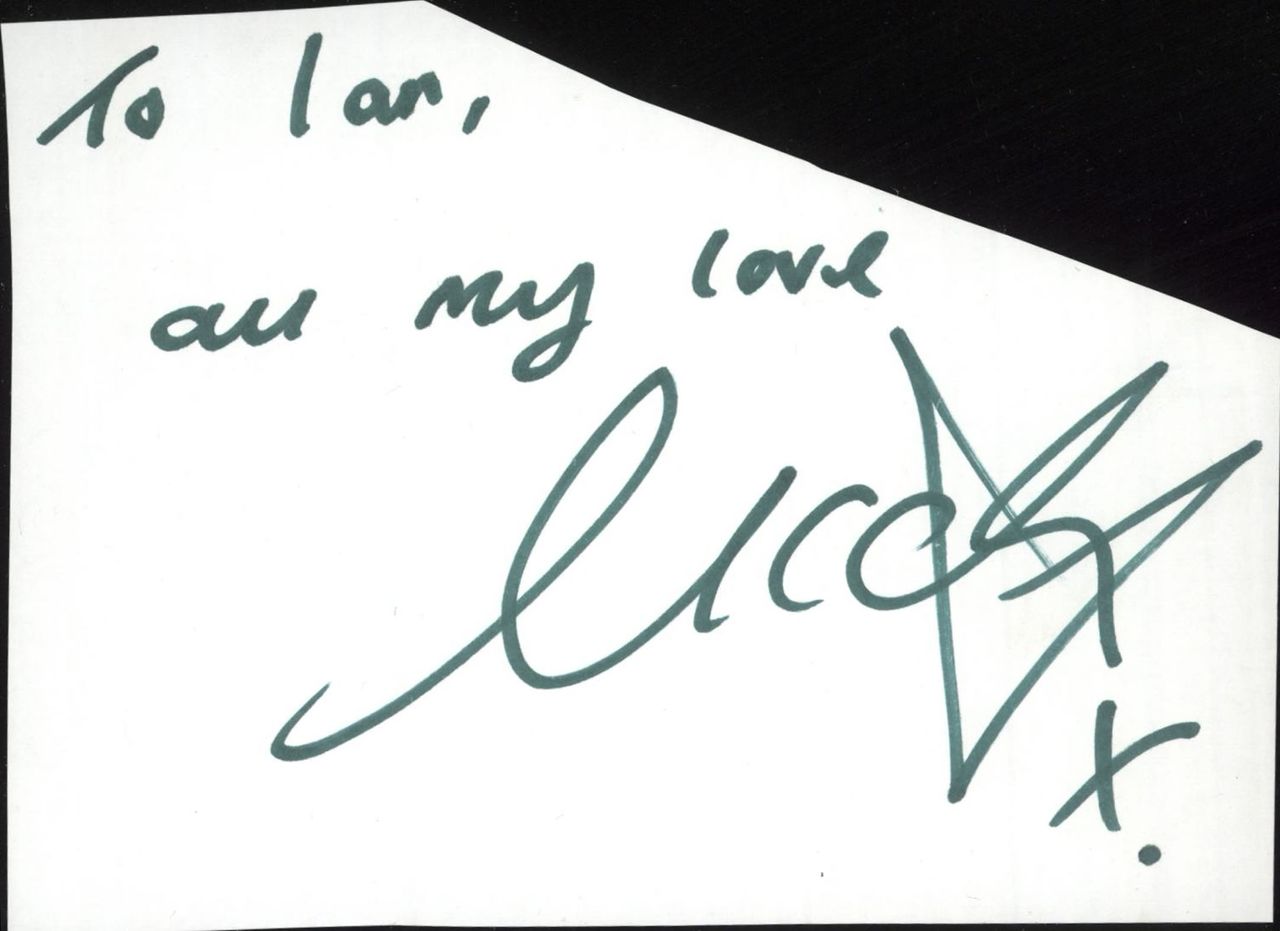 To Ian,
all my love
x.